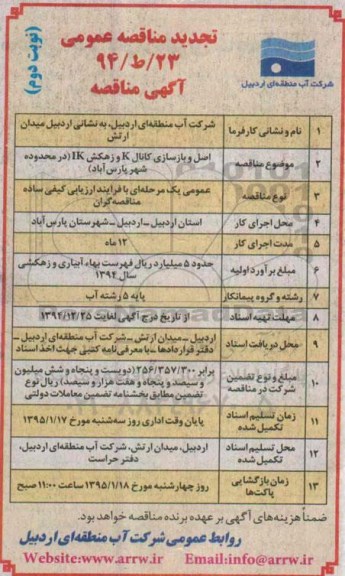 تجدید مناقصه عمومی
۹۴/ط/۲۳
آگهی مناقصه
(نوبت دوم)
شرکت آب منطقه‌ای اردبیل
۱ نام و نشانی کارفرما شرکت آب منطقه‌ای اردبیل، به نشانی اردبیل میدان
ارتش
۲ موضوع مناقصه اصل و بازسازی کانال K و زهکش IK (در محدوده
شهر پارس‌آباد)
۳ نوع مناقصه عمومی یک مرحله‌ای با فرایند ارزیابی کیفی ساده
مناقصه‌گران
۴ محل اجرای کار استان اردبیل ـ اردبیل ـ شهرستان پارس‌آباد
۵ مدت اجرای کار ۱۲ ماه
۶ مبلغ برآورد اولیه حدود ۵ میلیارد ریال فهرست بهاء آبیاری و زهکشی
سال ۱۳۹۴
۷ رشته و گروه پیمانکار پایه ۵ رشته آب
۸ مهلت تهیه اسناد از تاریخ درج آگهی لغایت ۱۳۹۴/۱۲/۲۵
۹ محل دریافت اسناد اردبیل ـ میدان ارتش ـ شرکت آب منطقه‌ای اردبیل ـ
دفتر قراردادها ـ با معرفی‌نامه کتبی جهت اخذ اسناد
۱۰ مبلغ و نوع تضمین
شرکت در مناقصه برابر ۲۵۶/۳۵۷/۳۰۰ (دویست و پنجاه و شش میلیون
و سیصد و پنجاه و هفت هزار و سیصد) ریال نوع
تضمین مطابق بخشنامه تضمین معاملات دولتی
۱۱ زمان تسلیم اسناد
تکمیل شده پایان وقت اداری روز سه‌شنبه مورخ ۱۳۹۵/۱/۱۷
۱۲ محل تسلیم اسناد
تکمیل شده اردبیل، میدان ارتش، شرکت آب منطقه‌ای اردبیل،
دفتر حراست
۱۳ زمان بازگشایی
پاکت‌ها روز چهارشنبه مورخ ۱۳۹۵/۱/۱۸ ساعت ۱۱:۰۰ صبح
ضمناً هزینه‌های آگهی بر عهده برنده مناقصه خواهد بود.
روابط عمومی شرکت آب منطقه‌ای اردبیل
Website:www.arrw.ir Email:info@arrw.ir